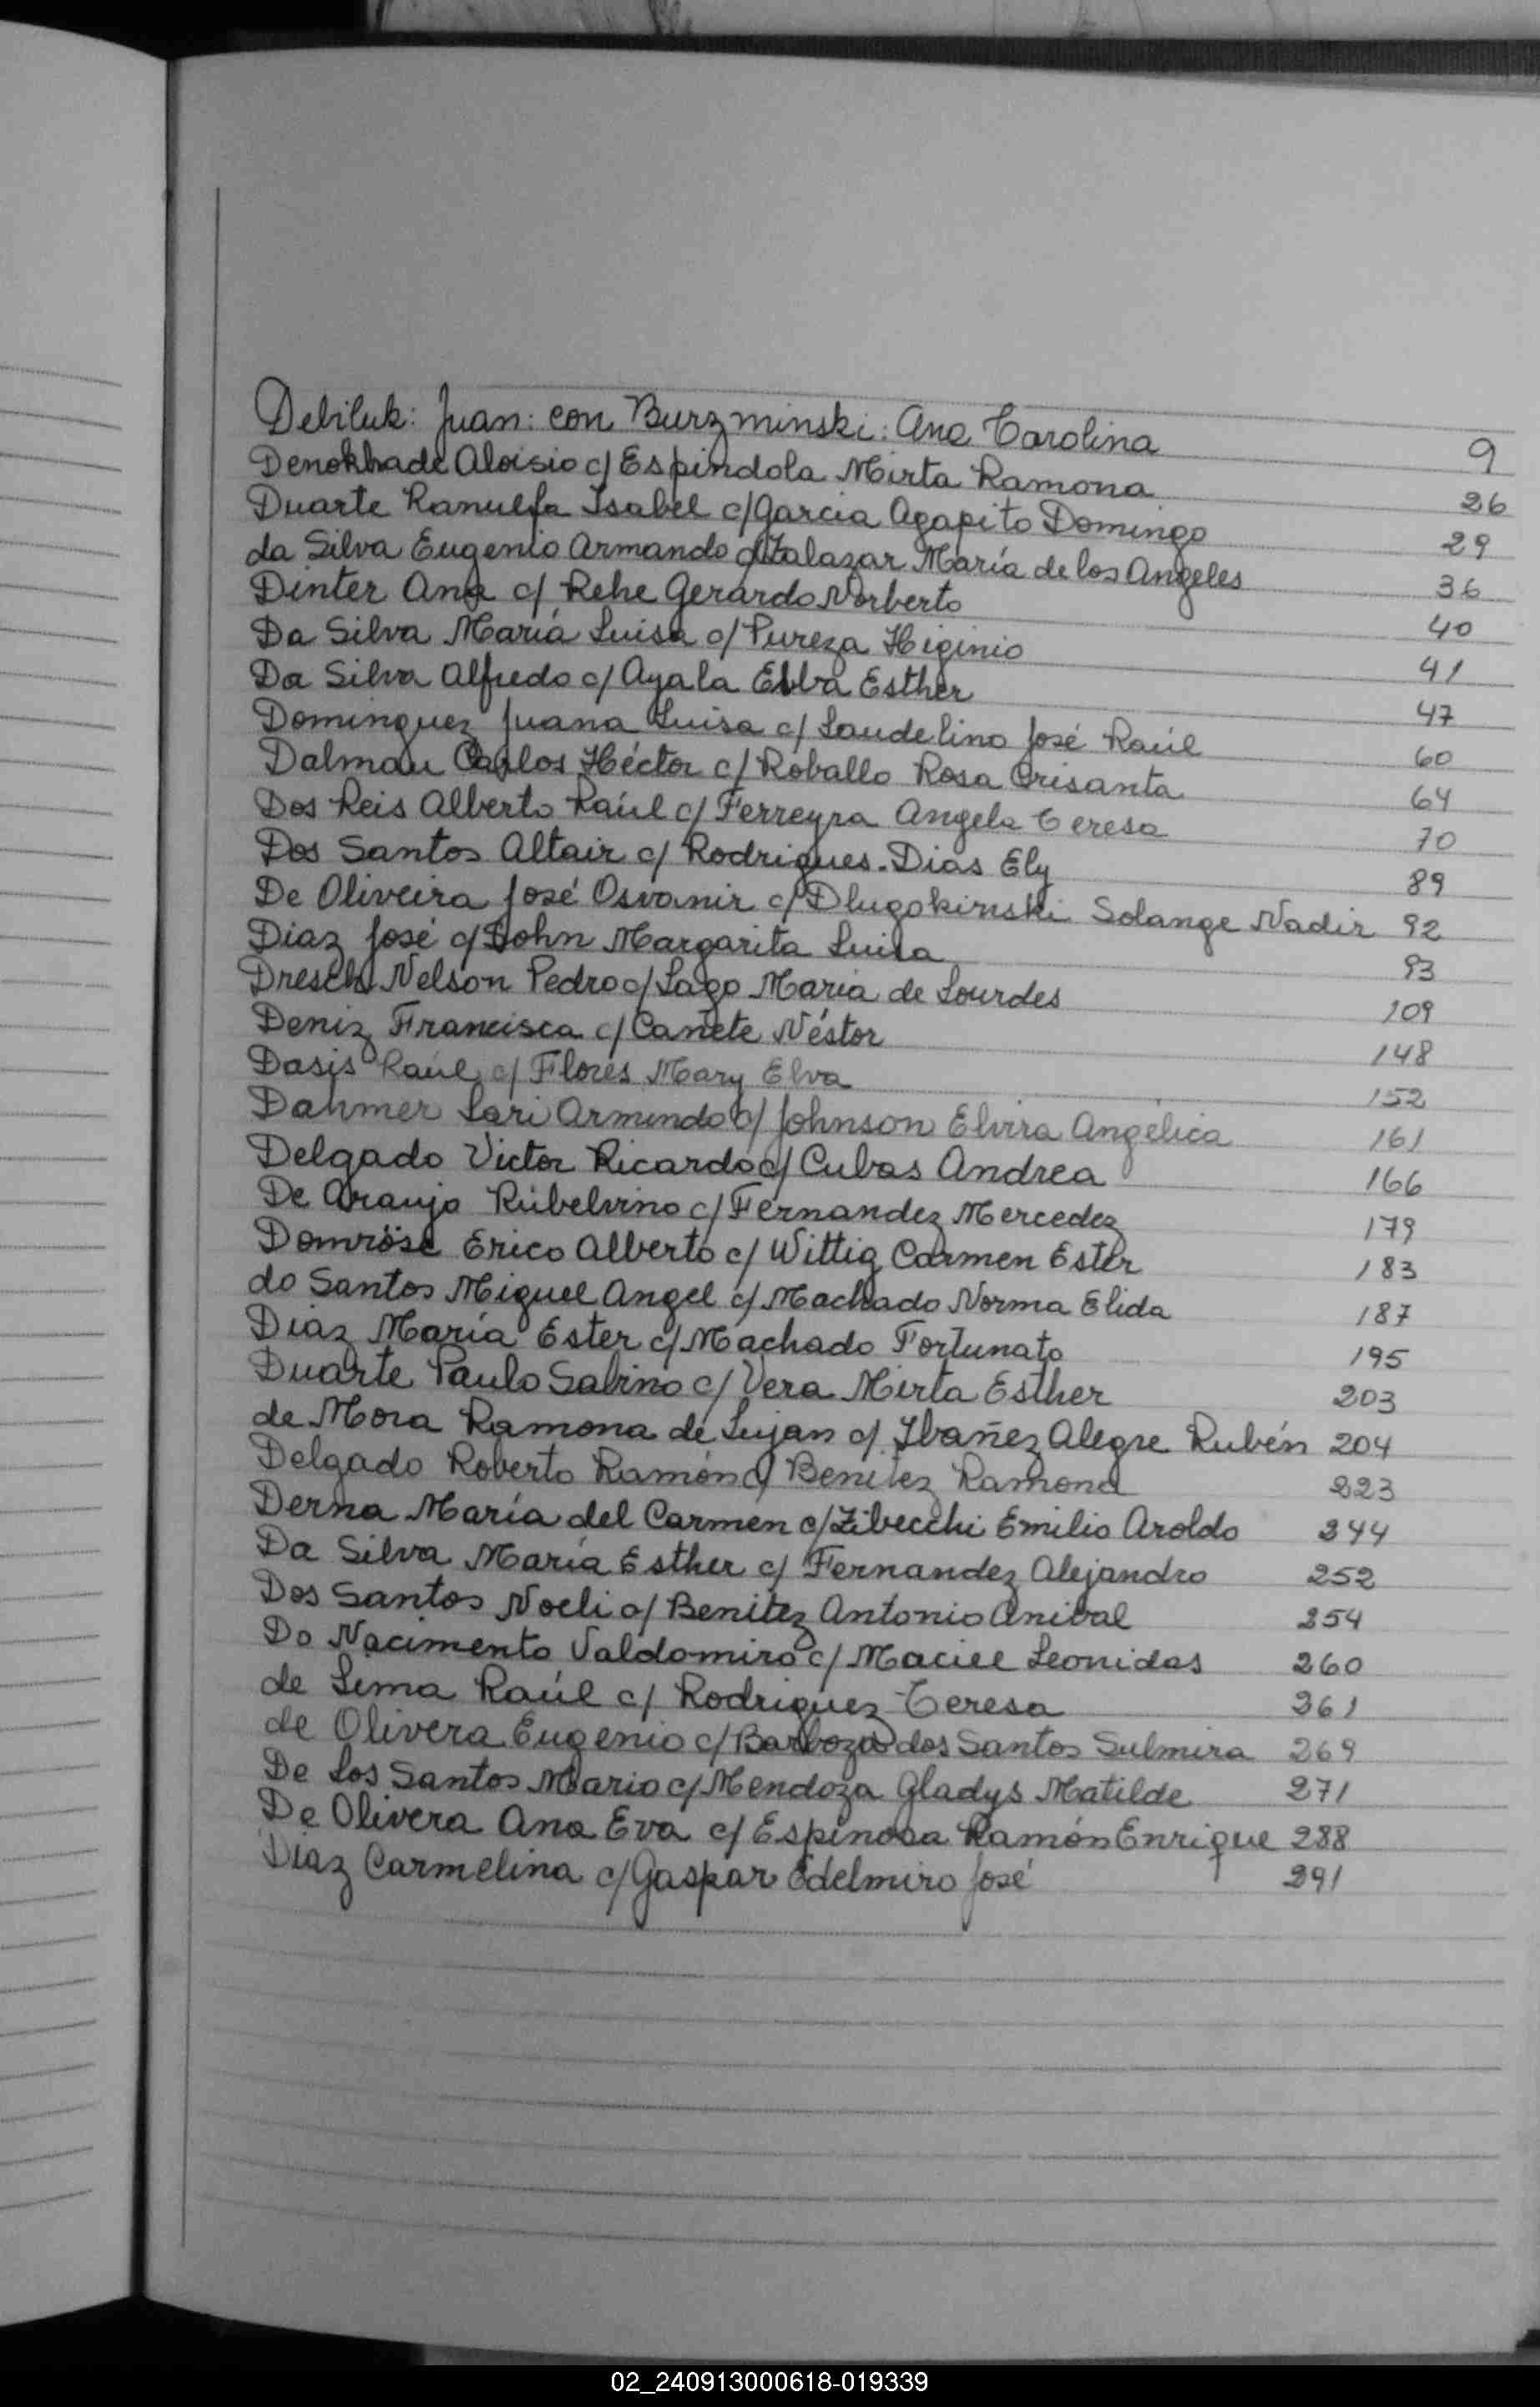 Debiluk: Juan: con Burzminski: Ana Carolina 9
Denokhade Aloisio c/ Espindola Mirta Ramona 26
Duarte Ranulfa Isabel c/ Garcia Agapito Domingo 29
da Silva Eugenio Armando c/ Zalazar María de los Angeles 36
Dinter Ana c/ Rehe Gerardo Norberto 40
Da Silva María Luisa c/ Pureza Higinio 41
Da Silva Alfredo c/ Ayala Elba Esther 47
Dominguez Juana Luisa c/ Laudelino José Raúl 60
Dalmau Carlos Héctor c/ Roballo Rosa Crisanta 64
Dos Reis Alberto Raúl c/ Ferreyra Angela Teresa 70
Dos Santos Altair c/ Rodrigues-Dias Ely 89
De Oliveira José Osvanir c/ Dlugokinski Solange Nadir 92
Diaz José c/ Dohn Margarita Luisa 93
Dresch Nelson Pedro c/ Lago María de Lourdes 109
Deniz Francisca c/ Cañete Néstor 148
Dasis Raúl c/ Flores Mary Elva 152
Dahmer Lari Armindo c/ Johnson Elvira Angélica 161
Delgado Victor Ricardo c/ Cubas Andrea 166
De Araujo Rúbelvino c/ Fernandez Mercedez 179
Domröse Erico Alberto c/ Wittig Carmen Ester 183
do Santos Miguel Angel c/ Machado Norma Elida 187
Diaz María Ester c/ Machado Fortunato 195
Duarte Paulo Sabino c/ Vera Mirta Esther 203
de Mora Ramona de Lujan c/ Ibañez Alegre Rubén 204
Delgado Roberto Ramón c/ Benitez Ramona 223
Derna María del Carmen c/ Zibecchi Emilio Aroldo 244
Da Silva María Esther c/ Fernandez Alejandro 252
Dos Santos Noeli c/ Benitez Antonio Anibal 254
Do Nacimento Valdomiro c/ Maciel Leonidas 260
de Lima Raúl c/ Rodriguez Teresa 261
de Olivera Eugenio c/ Barboza dos Santos Sulmira 269
De Los Santos Mario c/ Mendoza Gladys Matilde 271
De Olivera Ana Eva c/ Espinosa Ramón Enrique 288
Diaz Carmelina c/ Gaspar Edelmiro José 291
02_240913000618-019339